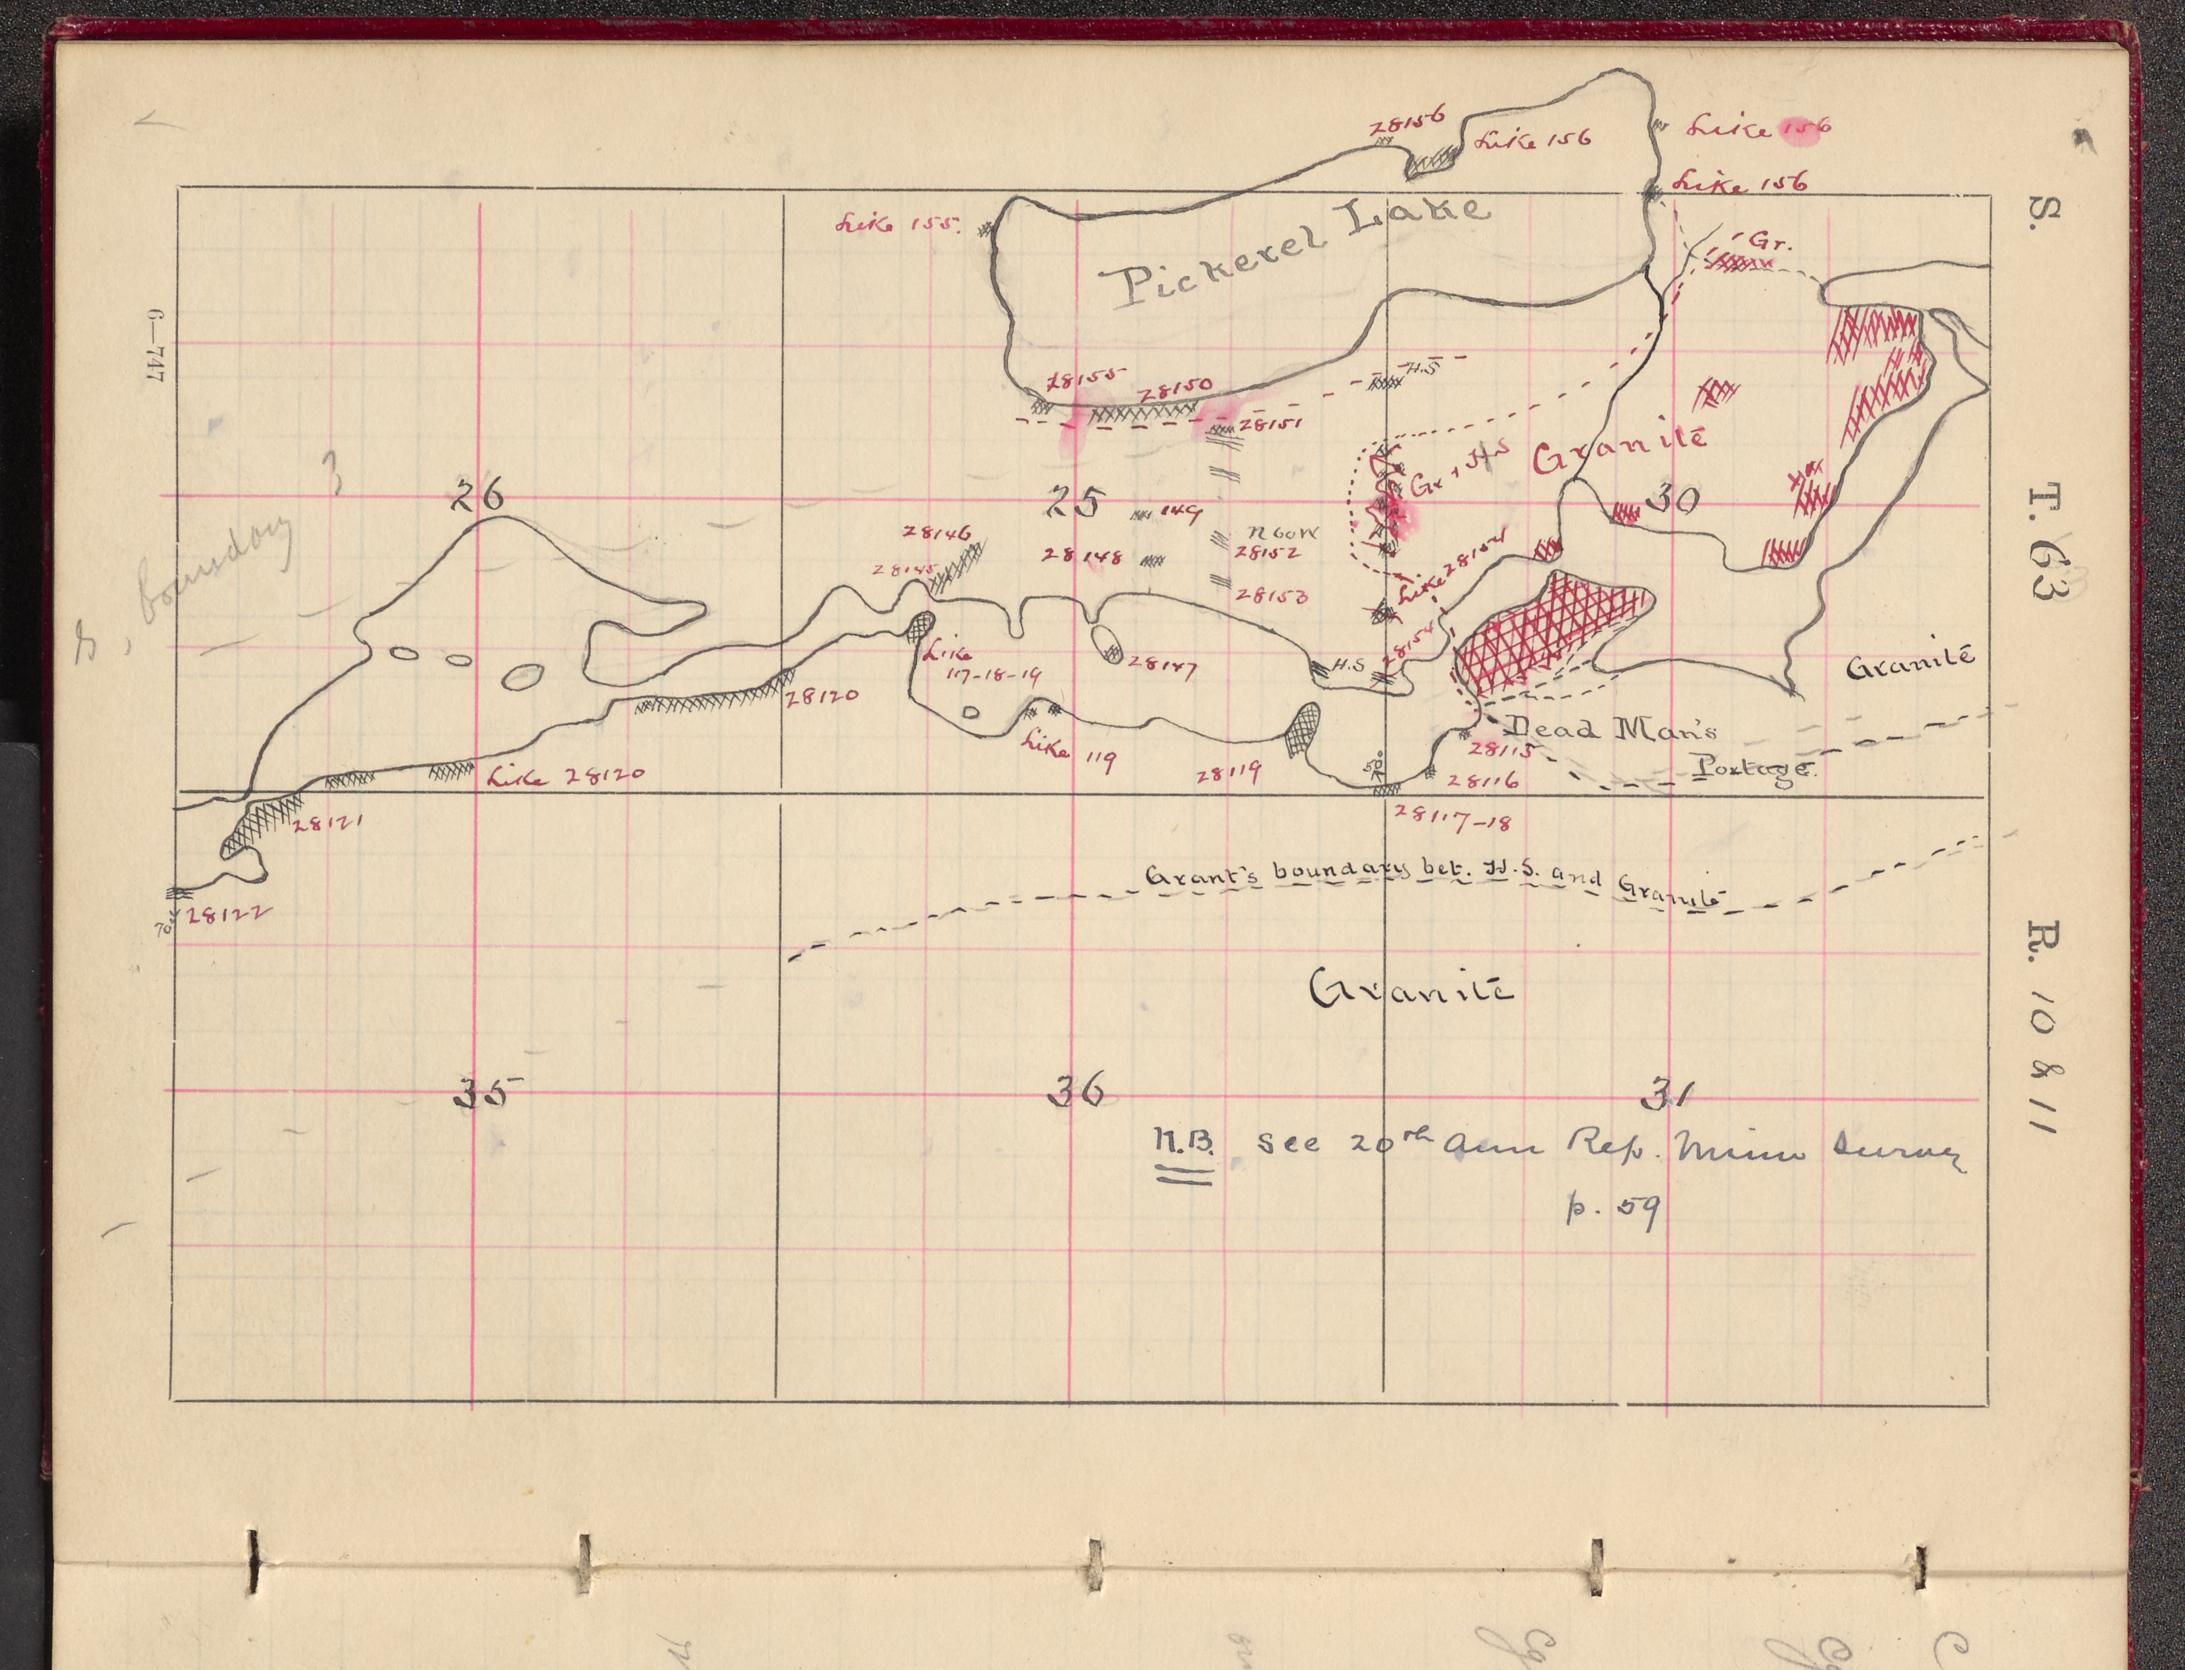 28156
Like 156
Like 156
Like 156
S.
Like 155.
Pickerel Lake
Gr.
6—747
28155
28150
H.S
28151
Granite
Gr + H S
26
25
149
30
T. 63
28146
N60W
28148
28152
28145
28153
Like 28154
S, boundary
Like
117-18-19
28147
H.S
28154
Granite
28120
Dead Man's
Portage.
Like 119
28115
28119
28116
Like 28120
50°
28117-18
28121
Grant's boundary bet. H.S. and Granite
28122
R. 10 & 11
Granite
35
36
31
N.B. See 20th Ann Rep. Minn Survey
p. 59